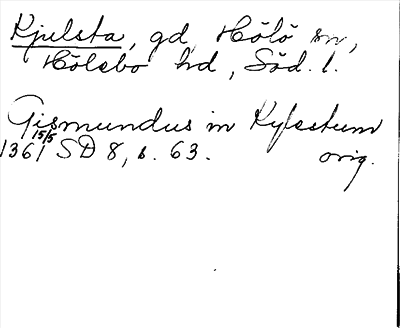 Kjulsta, gd, Hölö sn,
Hölebo hd, Söd. l.
Gismundus in Kylestum
1361 15/5 SD 8, s. 63. orig.